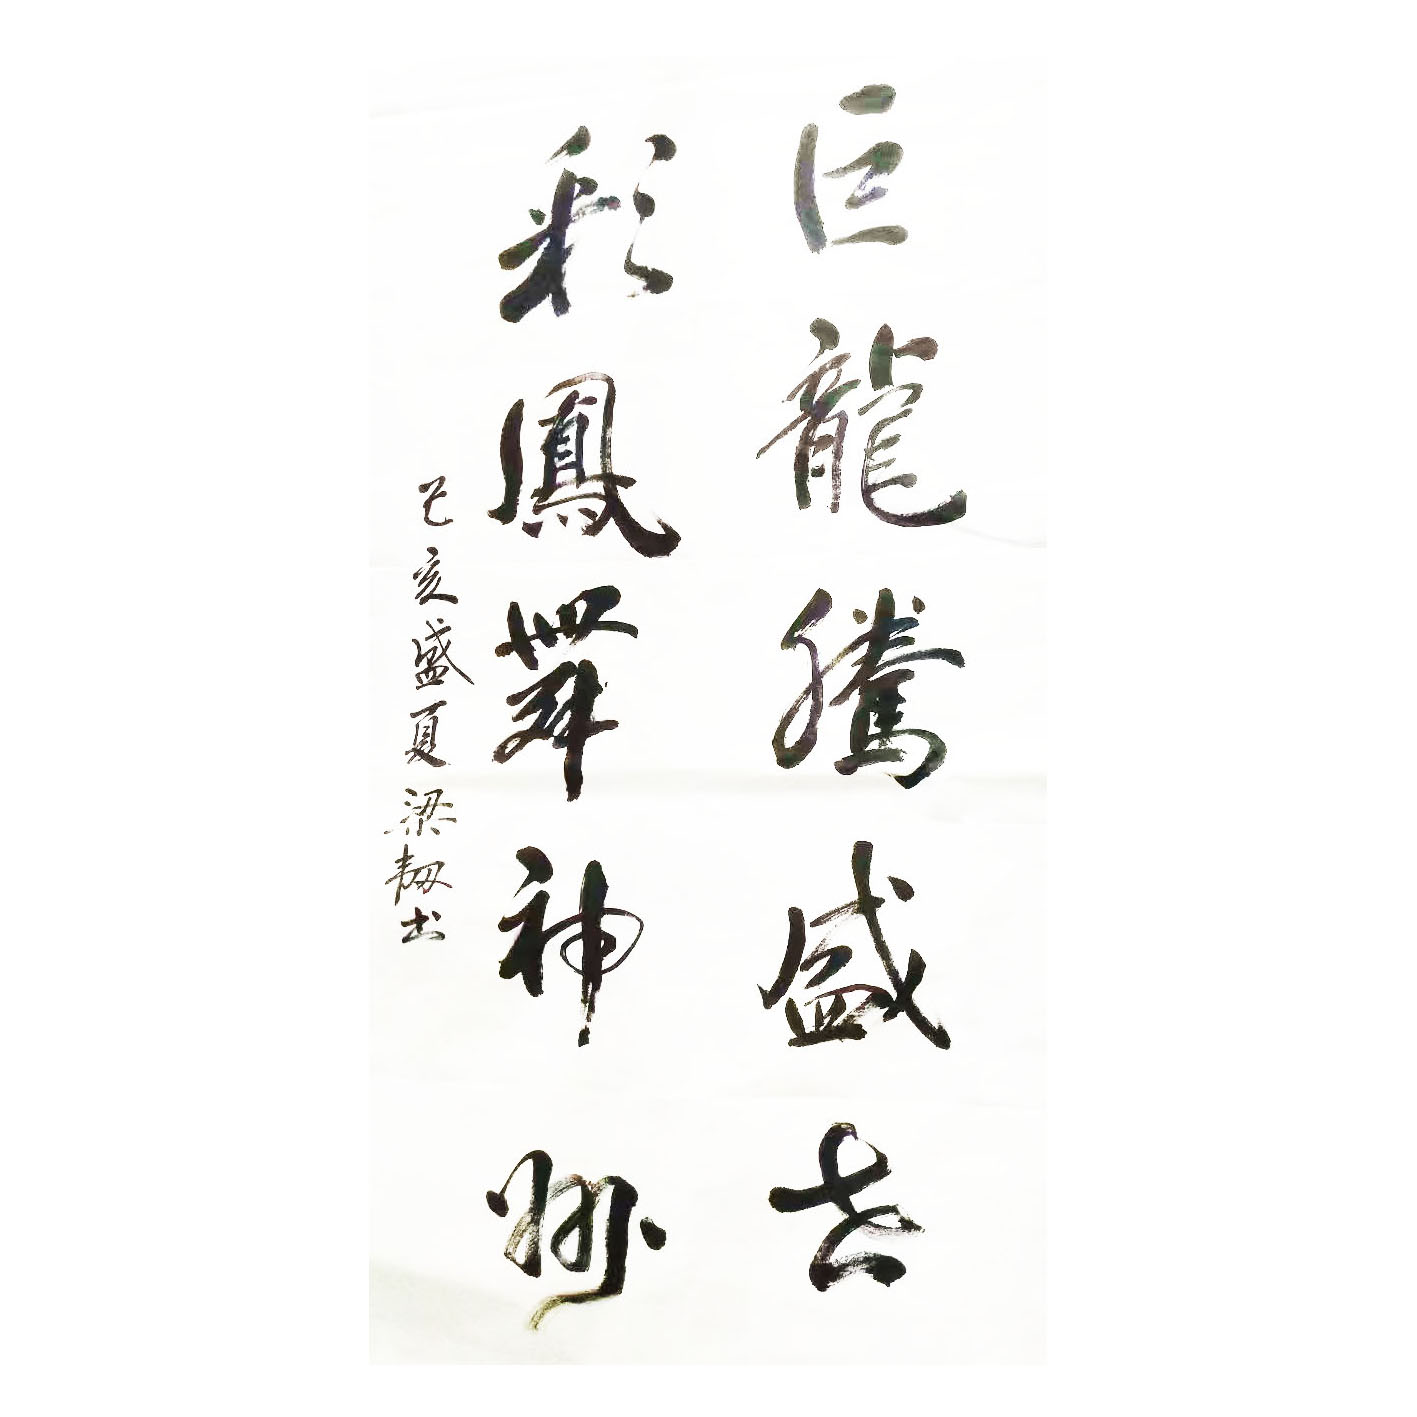 巨龍騰盛世
彩鳳舞神州
己亥盛夏梁韌書